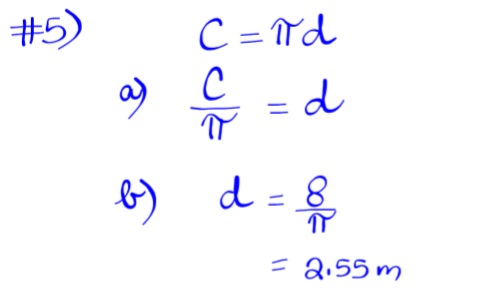 #5) C = πd
a) C/π = d
b) d = 8/π
= 2.55 m